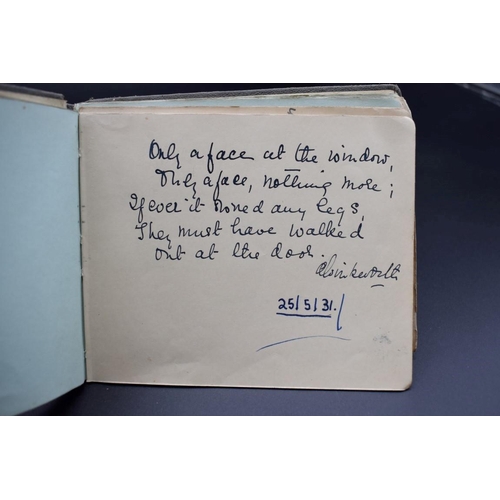 Only a face at the window,
Only a face, nothing more;
If ever it owned any legs,
They must have walked
out at the door.
25/5/31.